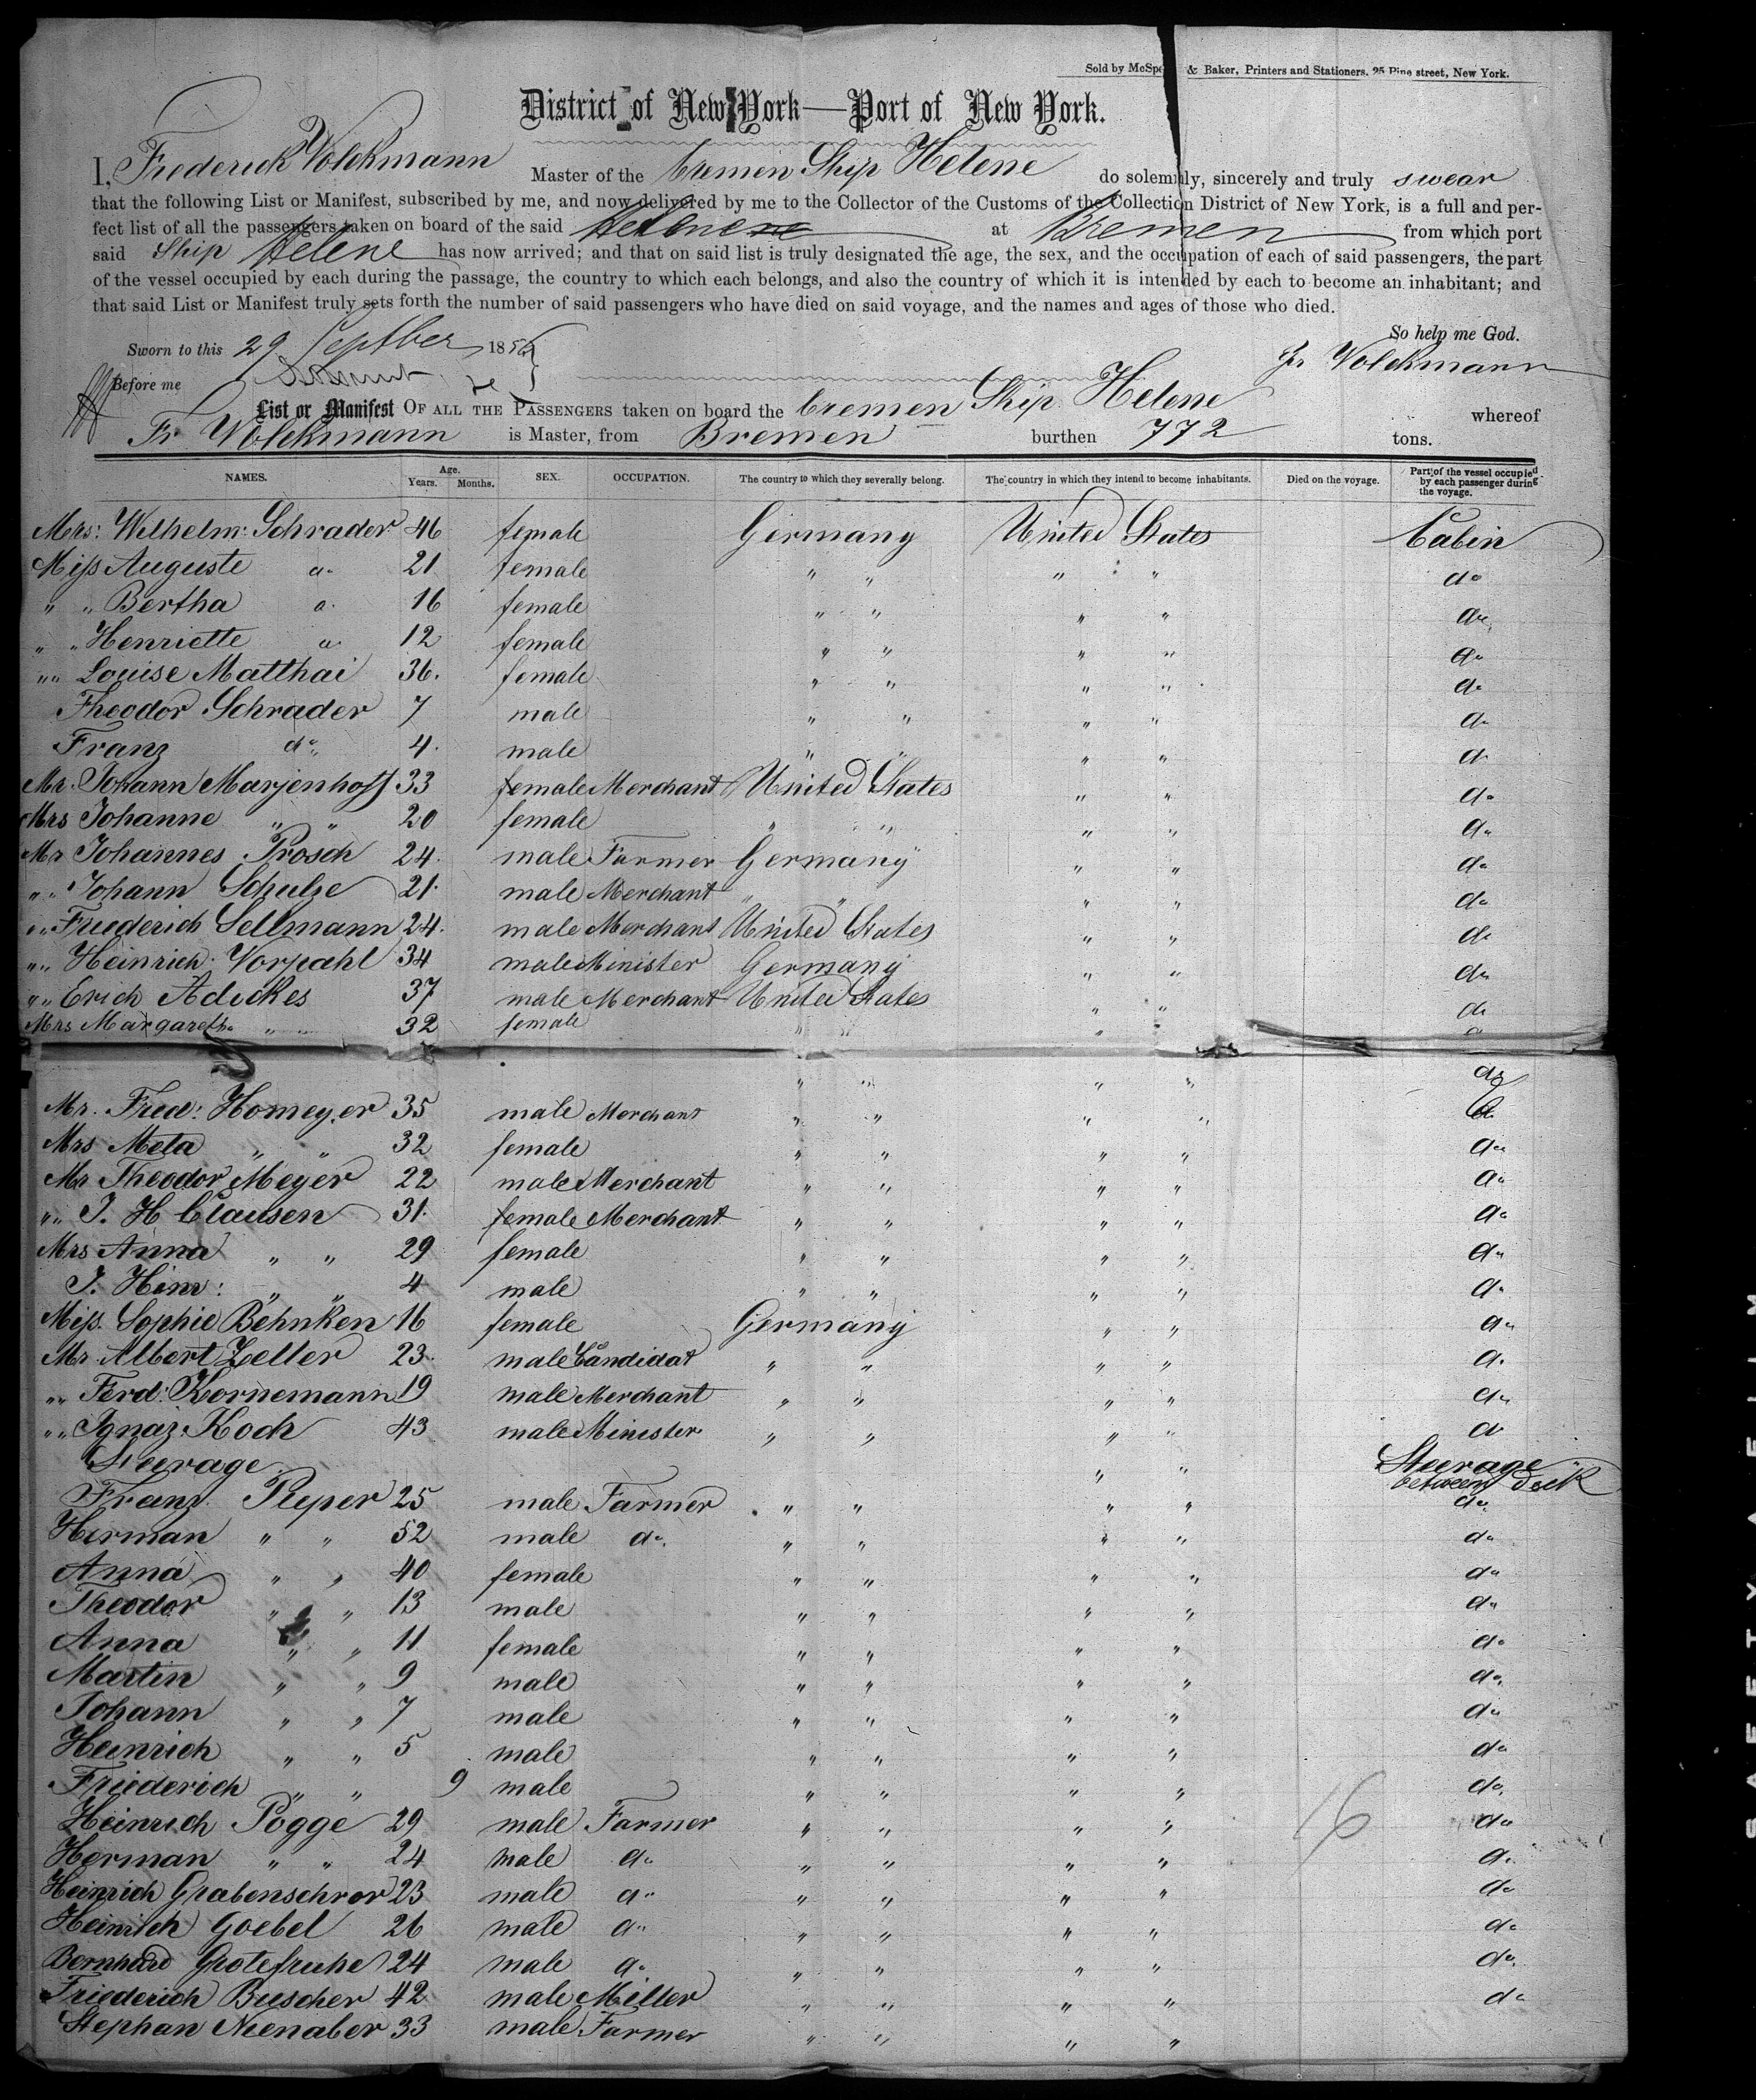 Sold by McSpe & Baker, Printers and Stationers, 25 Pine street, New York.
District of New York—Port of New York.
I, Frederick Volckmann Master of the bremen Ship Helene do solemnly, sincerely and truly swear
that the following List or Manifest, subscribed by me, and now delivered by me to the Collector of the Customs of the Collection District of New York, is a full and per-
fect list of all the passengers taken on board of the said Helene at Bremen from which port
said Ship Helene has now arrived; and that on said list is truly designated the age, the sex, and the occupation of each of said passengers, the part
of the vessel occupied by each during the passage, the country to which each belongs, and also the country of which it is intended by each to become an inhabitant; and
that said List or Manifest truly sets forth the number of said passengers who have died on said voyage, and the names and ages of those who died.
So help me God.
Sworn to this 29 Septber 1856
Fr Volckmann
Before me
List or Manifest OF ALL THE PASSENGERS taken on board the bremen Ship Helene whereof
Fr Volckmann is Master, from Bremen burthen 772 tons.
NAMES. Age. Years. Months. SEX. OCCUPATION. The country to which they severally belong. The country in which they intend to become inhabitants. Died on the voyage. Part of the vessel occupied by each passenger during the voyage.
Mrs: Wilhelm: Schrader 46 female Germany United States Cabin
Miss Auguste do 21 female " " " " do
" " Bertha do 16 female " " " " do
" " Henriette do 12 female " " " " do
" " Louise Matthai 36. female " " " " do
Theodor Schrader 7 male " " " " do
Franz do 4. male " " " " do
Mr. Johann Marjenhoff 33 female Merchant United States " " do
Mrs Johanne " " 20 female " " " " do
Mr Johannes Prosch 24. male Farmer Germany " " do
" " Johann Schulze 21. male Merchant " " " " do
" " Friederich Sellmann 24. male Merchant United States " " do
" " Heinrich Vorpahl 34 male Minister Germany " " do
" " Erich Adickes 37 male Merchant United States " " do
Mrs Margarethe " " 32 female " " " " do
" " " " do
Mr. Fred: Homeyer 35 male Merchant " " " " do
Mrs Meta " " 32 female " " " " do
Mr Theodor Meyer 22 male Merchant " " " " do
" " J. H Clausen 31. female Merchant " " " " do
Mrs Anna " " 29 female " " " " do
J. Hinr: " " 4 male " " " " do
Miss. Sophie Behnken 16 female Germany " " do
Mr. Albert Zeller 23. male Candidat " " " " do
" " Ferd: Kornemann 19 male Merchant " " " " do
" " Ignaz Koch 43 male Minister " " " " do
Steerage " " Steerage between deck
Franz Pieper 25 male Farmer " " " " do
Herman " " 52 male do. " " " " do
Anna " " 40 female " " " " do
Theodor " " 13 male " " " " do
Anna " " 11 female " " " " do
Martin " " 9 male " " " " do
Johann " " 7 male " " " " do
Heinrich " " 5 male " " " " do
Friederich " " 9 male " " " " do
Heinrich Pögge 29 male Farmer " " " " do
16
Herman " " 24 male do " " " " do
Heinrich Grabenschror 23 male do " " " " do
Heinrich Goebel 26 male do " " " " do
Bernhard Grotefruhe 24 male do " " " " do
Friederich Buscher 42 male Miller " " " " do
Stephan Nienaber 33 male Farmer " " " "